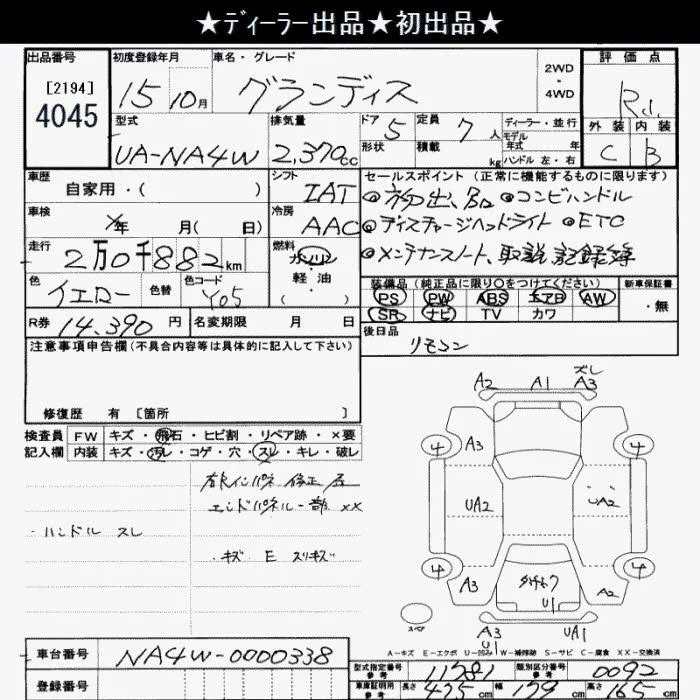 ★ディーラー出品★初出品★
出品番号 初度登録年月 車名・グレード 2WD・4WD 評価点
[2194] 4045 15 10月 グランディス R1
型式 排気量 ドア 5 定員 7人 ディーラー・並行 外装 内装
UA-NA4W 2,370cc 形状 積載 kg モデル年式 年 C B
ハンドル 左・右
車歴 自家用・( ) シフト IAT セールスポイント (正常に機能するものに限ります)
◎コンビハンドル
車検 年 月( 日) 冷房 AAC ◎ディスチャージヘッドライト ◎ETC
走行 2万0千882km 燃料 ガソリン 軽・油 ( ) ◎メンテナンスノート、取説、記録簿
色 イエロー 色替 色コード Y05 装備品 (純正品に限り○をつけてください) 新車保証書
PS PW ABS エアB AW ・無
SR ナビ TV カワ
R券 14,390円 名変期限 月 日 後日品
リモコン
注意事項申告欄 (不具合内容等は具体的に記入して下さい)
修復歴 有 [箇所 ]
検査員記入欄 FW キズ・飛石・ヒビ割・リペア跡・×要
内装 キズ・汚レ・コゲ・穴・スレ・キレ・破レ
エンドパネル一部 XX
・ハンドル スレ
・キズ E スリキズ
A2 A1 A3 ズレ
4 A3 4
UA2 UA2
4 4
A3 A2
U1
スペア
A3 U1 UA1
A-キズ E-エクボ U-凹み W-補修跡 S-サビ C-腐食 XX-交換済
車台番号 NA4W-0000338
型式指定番号 参考 11781 類別区分番号 参考 0092
登録番号 車庫証明用 参考 長さ 475cm 幅 179cm 高さ 165cm